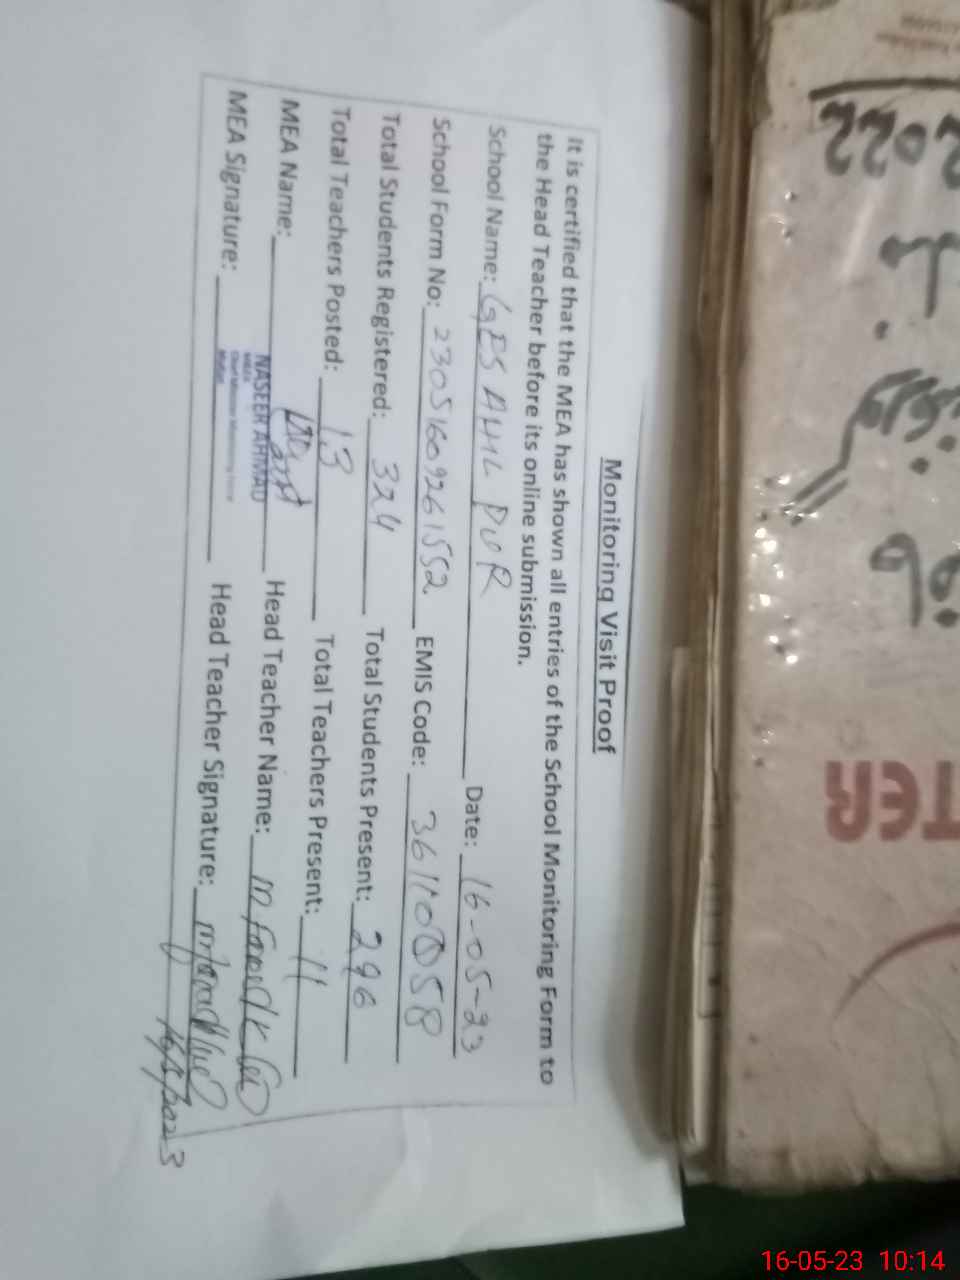 Monitoring Visit Proof
It is certified that the MEA has shown all entries of the School Monitoring Form to
the Head Teacher before its online submission.
School Name: GES AHIL PUR Date: 16-05-23
School Form No: 23051609261552 EMIS Code: 36110058
Total Students Registered: 324 Total Students Present: 296
Total Teachers Posted: 13 Total Teachers Present: 11
MEA Name: NASEER AHMAD Head Teacher Name:
MEA Signature: Head Teacher Signature:
16/5/2023
2022
TER
16-05-23 10:14